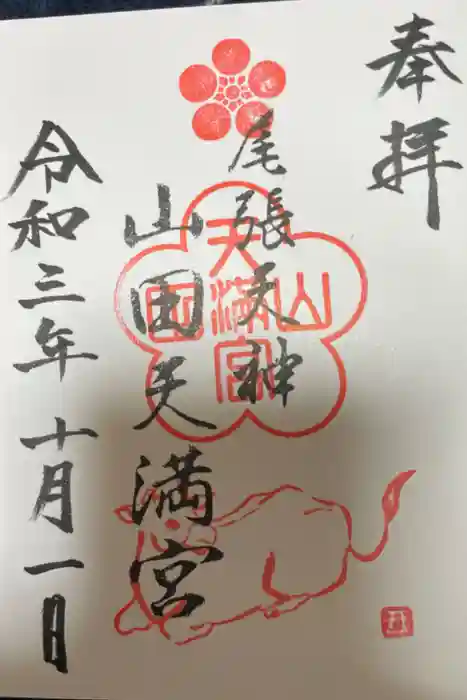 奉拝
尾張天神
山田天満宮
山田天満宮
令和三年十月一日